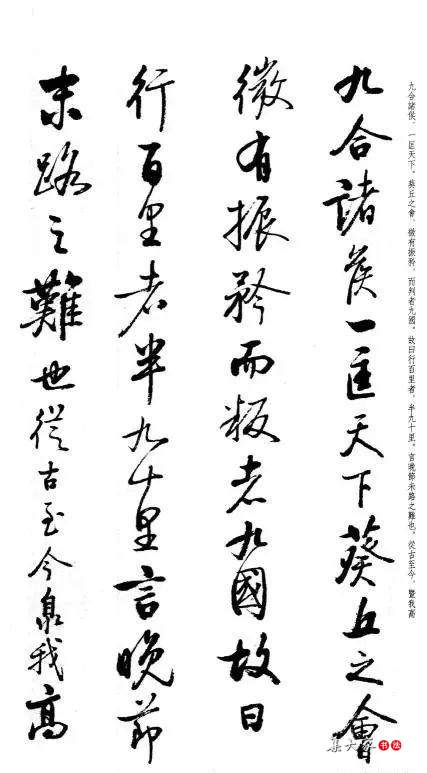 九合諸侯、一匡天下。葵丘之會、微有振矜、而判者九國。故曰行百里者、半九十里。言晚節末路之難也。從古至今、暨我高
九合諸侯一匡天下葵丘之會
微有振矜而叛者九國故曰
行百里者半九十里言晚節
末路之難也從古至今臮我高
书法